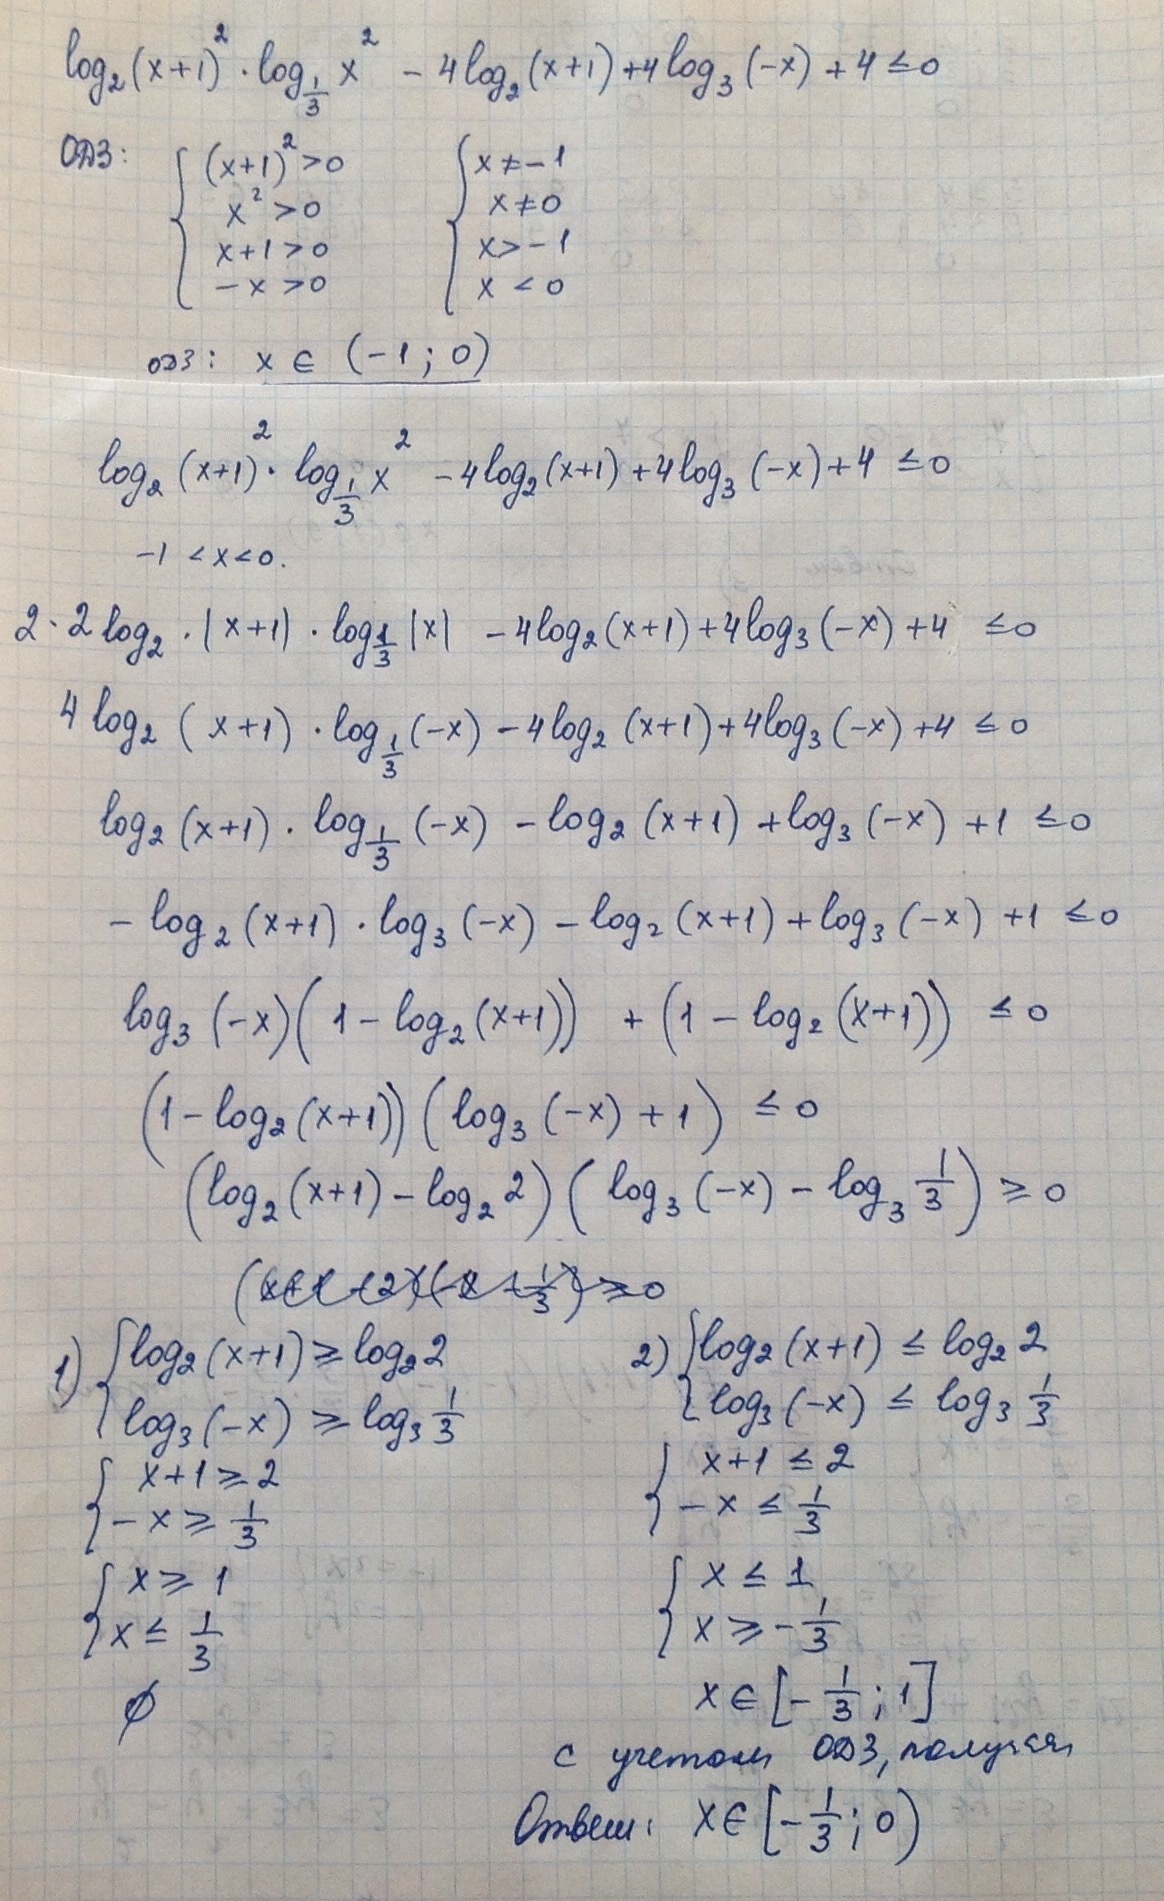 log₂(x+1)² · log_{1/3} x² - 4log₂(x+1) + 4log₃(-x) + 4 ≤ 0
ОДЗ: { (x+1)² > 0 { x ≠ -1
x² > 0 x ≠ 0
x+1 > 0 x > -1
-x > 0 x < 0
ОДЗ: x ∈ (-1; 0)
log₂(x+1)² · log_{1/3} x² - 4log₂(x+1) + 4log₃(-x) + 4 ≤ 0
-1 < x < 0.
2·2log₂ · |x+1| · log_{1/3} |x| - 4log₂(x+1) + 4log₃(-x) + 4 ≤ 0
4log₂(x+1) · log_{1/3}(-x) - 4log₂(x+1) + 4log₃(-x) + 4 ≤ 0
log₂(x+1) · log_{1/3}(-x) - log₂(x+1) + log₃(-x) + 1 ≤ 0
- log₂(x+1) · log₃(-x) - log₂(x+1) + log₃(-x) + 1 ≤ 0
log₃(-x)(1 - log₂(x+1)) + (1 - log₂(x+1)) ≤ 0
(1 - log₂(x+1))(log₃(-x) + 1) ≤ 0
(log₂(x+1) - log₂2)(log₃(-x) - log₃ 1/3) ≥ 0
1) { log₂(x+1) ≥ log₂2 2) { log₂(x+1) ≤ log₂2
log₃(-x) ≥ log₃ 1/3 log₃(-x) ≤ log₃ 1/3
{ x+1 ≥ 2 { x+1 ≤ 2
-x ≥ 1/3 -x ≤ 1/3
{ x ≥ 1 { x ≤ 1
x ≤ 1/3 x ≥ -1/3
∅ x ∈ [-1/3; 1]
с учетом ОДЗ, получаем
Ответ: x ∈ [-1/3; 0)